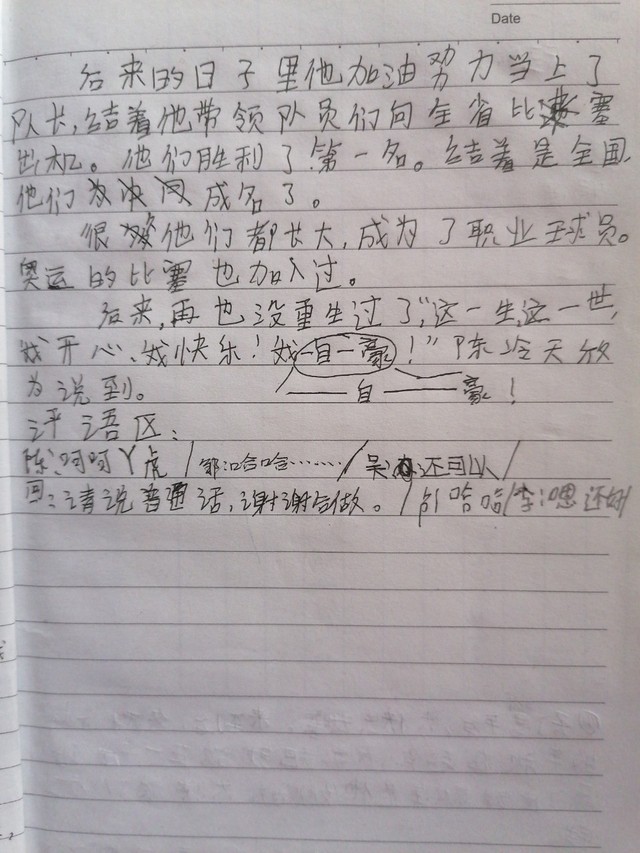 Date
后来的日子里他加油努力当上了
队长,结着他带领队员们向全省比赛
出机。他们胜利了第一名。结着是全国,
他们成名了。
很他们都长大,成为了职业球员。
奥运的比赛也加入过。
后来,再也没重生过了,“这一生,这一世,
我开心、我快乐!我自豪!”陈冷天放
为说到。 ——自——豪!
评语区:
陈:呵呵丫虎/邹:哈哈……/吴:还可以/
回:请说普通话,谢谢合做。/彭哈哈/李:嗯还好